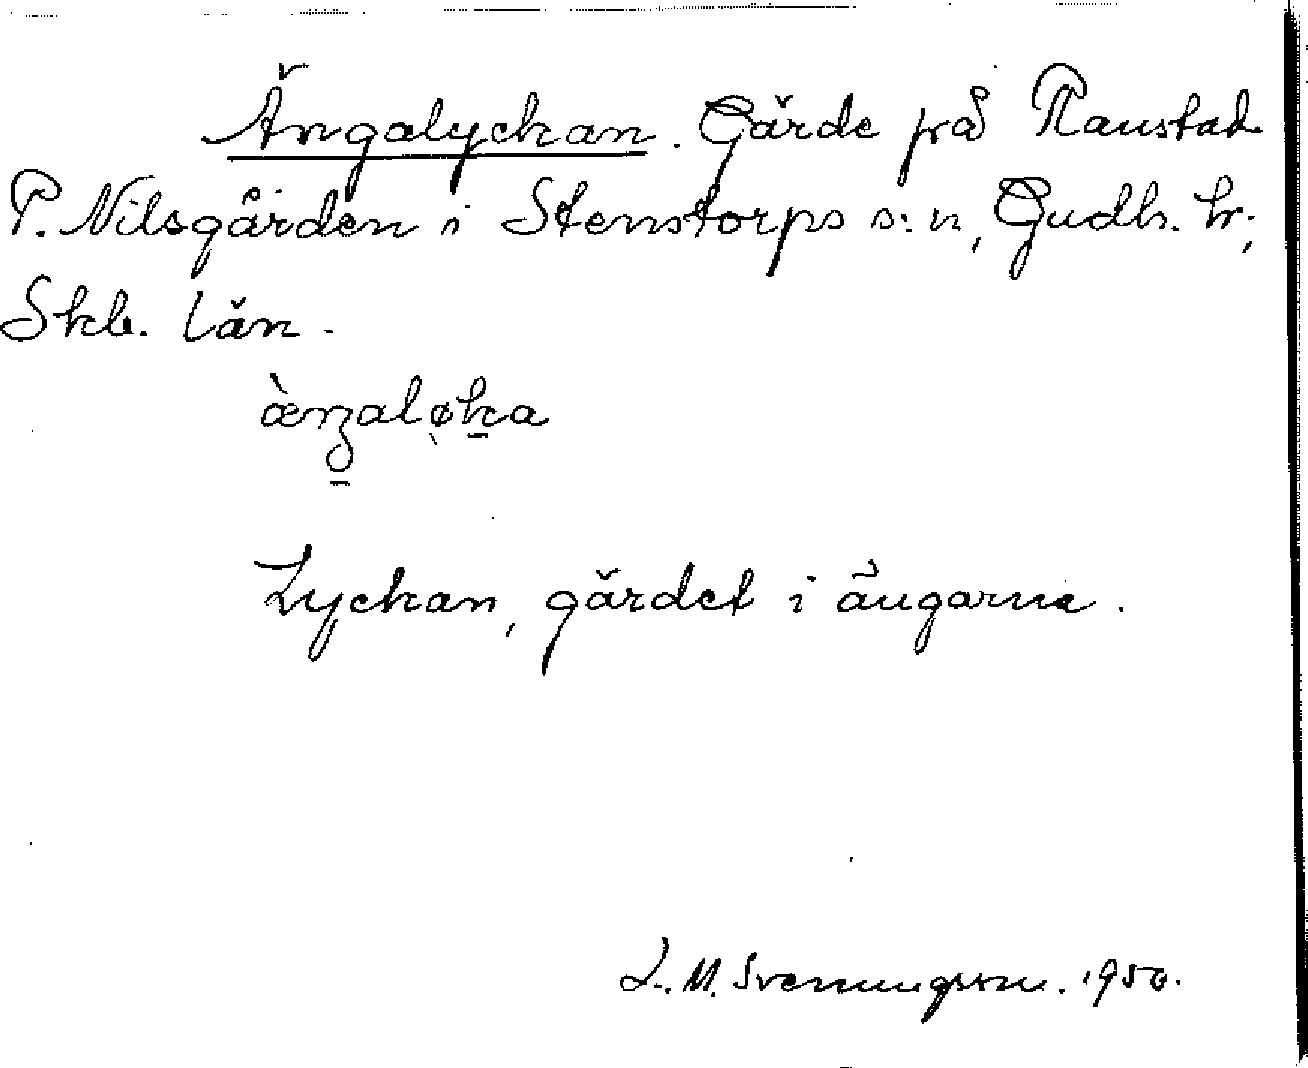 Ängalyckan. Gärde på Raustad
P. Nilsgården i Stenstorps s:n, Gudh. hr;
Skb. län.
æ̀nɡaløka
Lyckan, gärdet i ängarna.
L. M. Svenungsson. 1950.